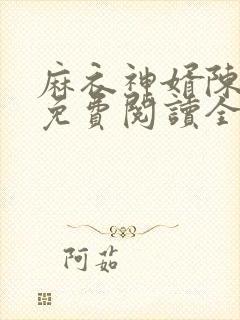 麻衣神婿陳
免費閱讀全
阿茹